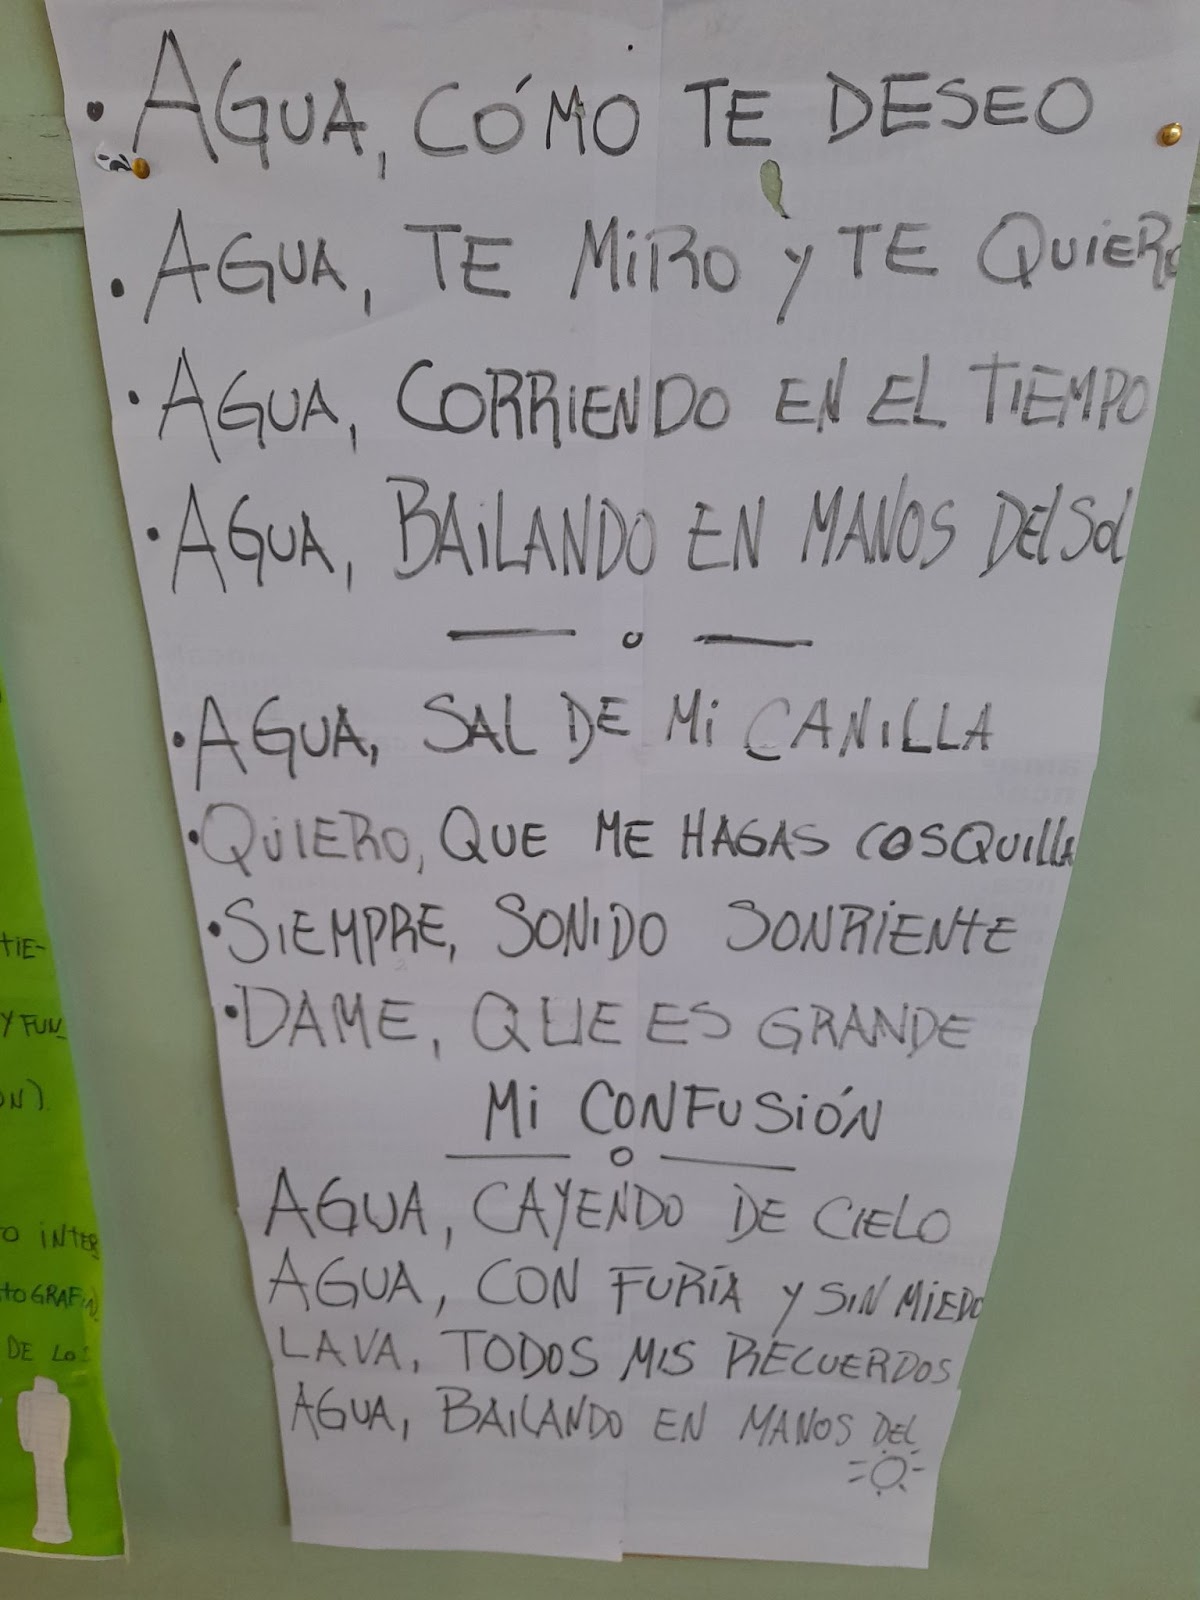 • AGUA, CÓMO TE DESEO
• AGUA, TE MIRO Y TE QUIERO
• AGUA, CORRIENDO EN EL TIEMPO
• AGUA, BAILANDO EN MANOS DEL SOL
— o —
• AGUA, SAL DE MI CANILLA
• QUIERO, QUE ME HAGAS COSQUILLA
• SIEMPRE, SONIDO SONRIENTE
• DAME, QUE ES GRANDE
MI CONFUSIÓN
— o —
AGUA, CAYENDO DE CIELO
AGUA, CON FURÍA Y SIN MIEDO
LAVA, TODOS MIS RECUERDOS
AGUA, BAILANDO EN MANOS DEL
TIE-
Y FUN
ÓN).
O INTER
TOGRAFÍA
DE LOS